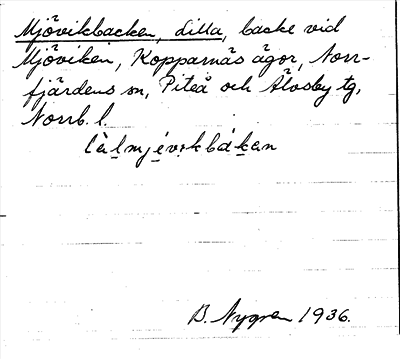 Mjövikbacken, Lilla, backe vid
Mjöviken, Kopparnäs ägor, Norr-
fjärdens sn, Piteå och Älvsby tg,
Norrb. l.
B. Nygren 1936.